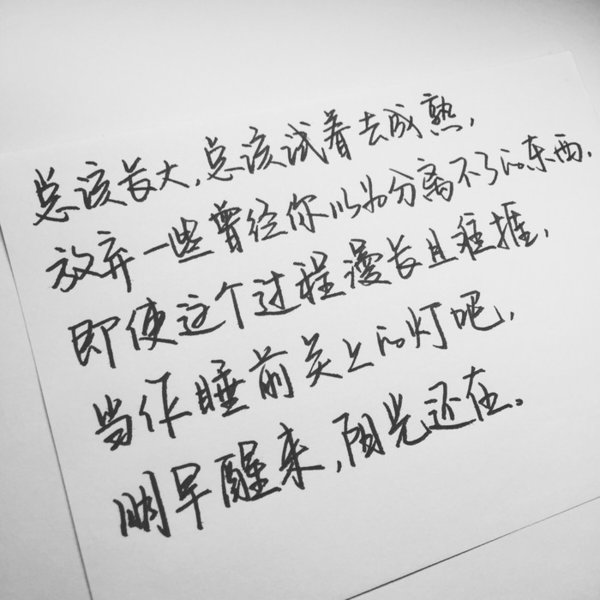 总该长大，总该试着去成熟，
放弃一些曾经你以为分离不了的东西，
即使这个过程漫长且
当作睡前关上的灯吧，
明早醒来，阳光还在。